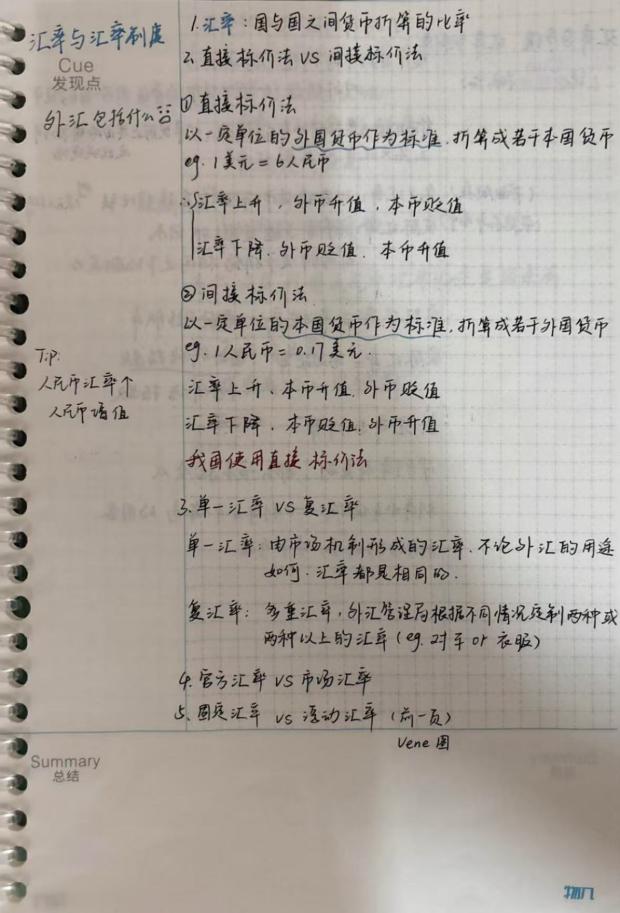 汇率与汇率制度
Cue
发现点
外汇包括什么
1.汇率:国与国之间货币折算的比率
2.直接标价法 VS 间接标价法
①直接标价法
以一定单位的外国货币作为标准,折算成若干本国货币
eg. 1美元=6人民币
∴汇率上升,外币升值,本币贬值
汇率下降,外币贬值,本币升值
②间接标价法
以一定单位的本国货币作为标准,折算成若干外国货币
eg. 1人民币=0.17美元.
Tip:
人民币汇率个
人民币增值
汇率上升,本币升值,外币贬值
汇率下降,本币贬值,外币升值
我国使用直接标价法
3.单一汇率 VS 复汇率
单一汇率:由市场机制形成的汇率,不论外汇的用途
如何,汇率都是相同的.
复汇率:多重汇率,外汇管理局根据不同情况定制两种或
两种以上的汇率(eg.对车or衣服)
4.官方汇率 VS 市场汇率
5.固定汇率 VS 浮动汇率(前一页)
Vene图
Summary
总结